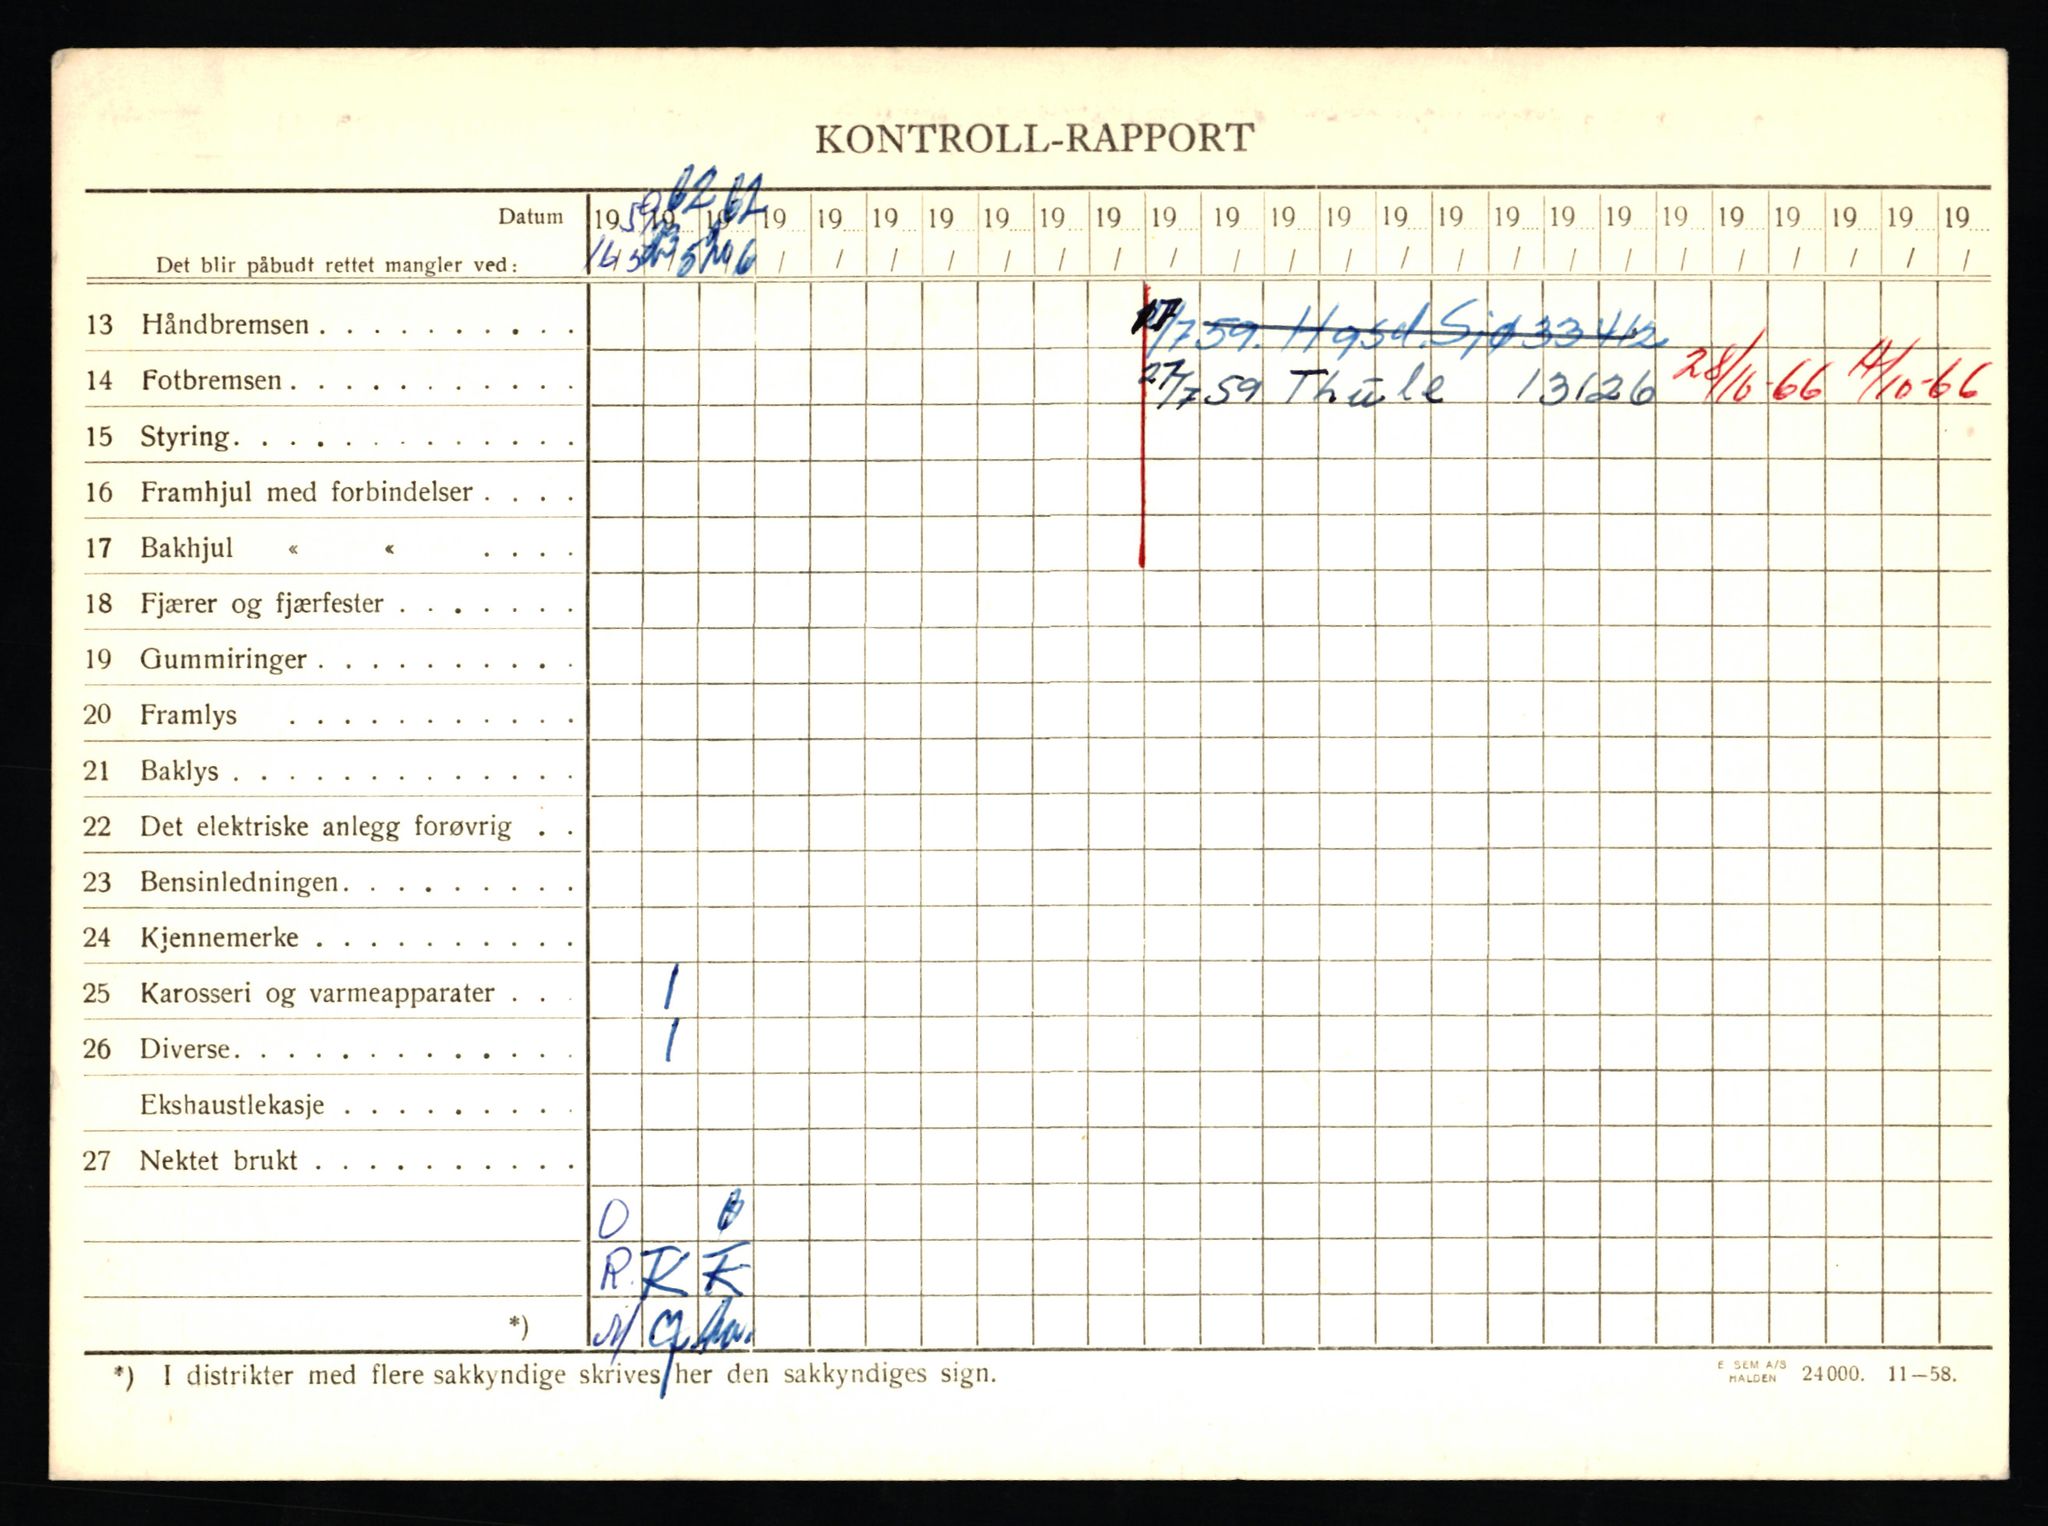 KONTROLL-RAPPORT
Datum 19 59 19 62 19 62 19 19 19 19 19 19 19 19 19 19 19 19 19 19 19 19 19 19 19 19 19 19
Det blir påbudt rettet mangler ved: / / / / / / / / / / / / / / / / / / / / / /
13 Håndbremsen . . . . . . . . . . 27/7 59. Hgsd. Sjø 33412
14 Fotbremsen . . . . . . . . . . . 27/7 59 Thule 13126 28/10-66 14/10-66
15 Styring. . . . . . . . . . . . .
16 Framhjul med forbindelser . . . .
17 Bakhjul « « . . . .
18 Fjærer og fjærfester . . . . . . .
19 Gummiringer . . . . . . . . . .
20 Framlys . . . . . . . . . . .
21 Baklys . . . . . . . . . . . . .
22 Det elektriske anlegg forøvrig . .
23 Bensinledningen. . . . . . . . .
24 Kjennemerke . . . . . . . . . .
25 Karosseri og varmeapparater . . . 1
26 Diverse. . . . . . . . . . . . . 1
Ekshaustlekasje . . . . . . . . .
27 Nektet brukt . . . . . . . . . .
O
R. K K
*) M
*) I distrikter med flere sakkyndige skrives her den sakkyndiges sign.
E SEM A/S
HALDEN 24000. 11—58.